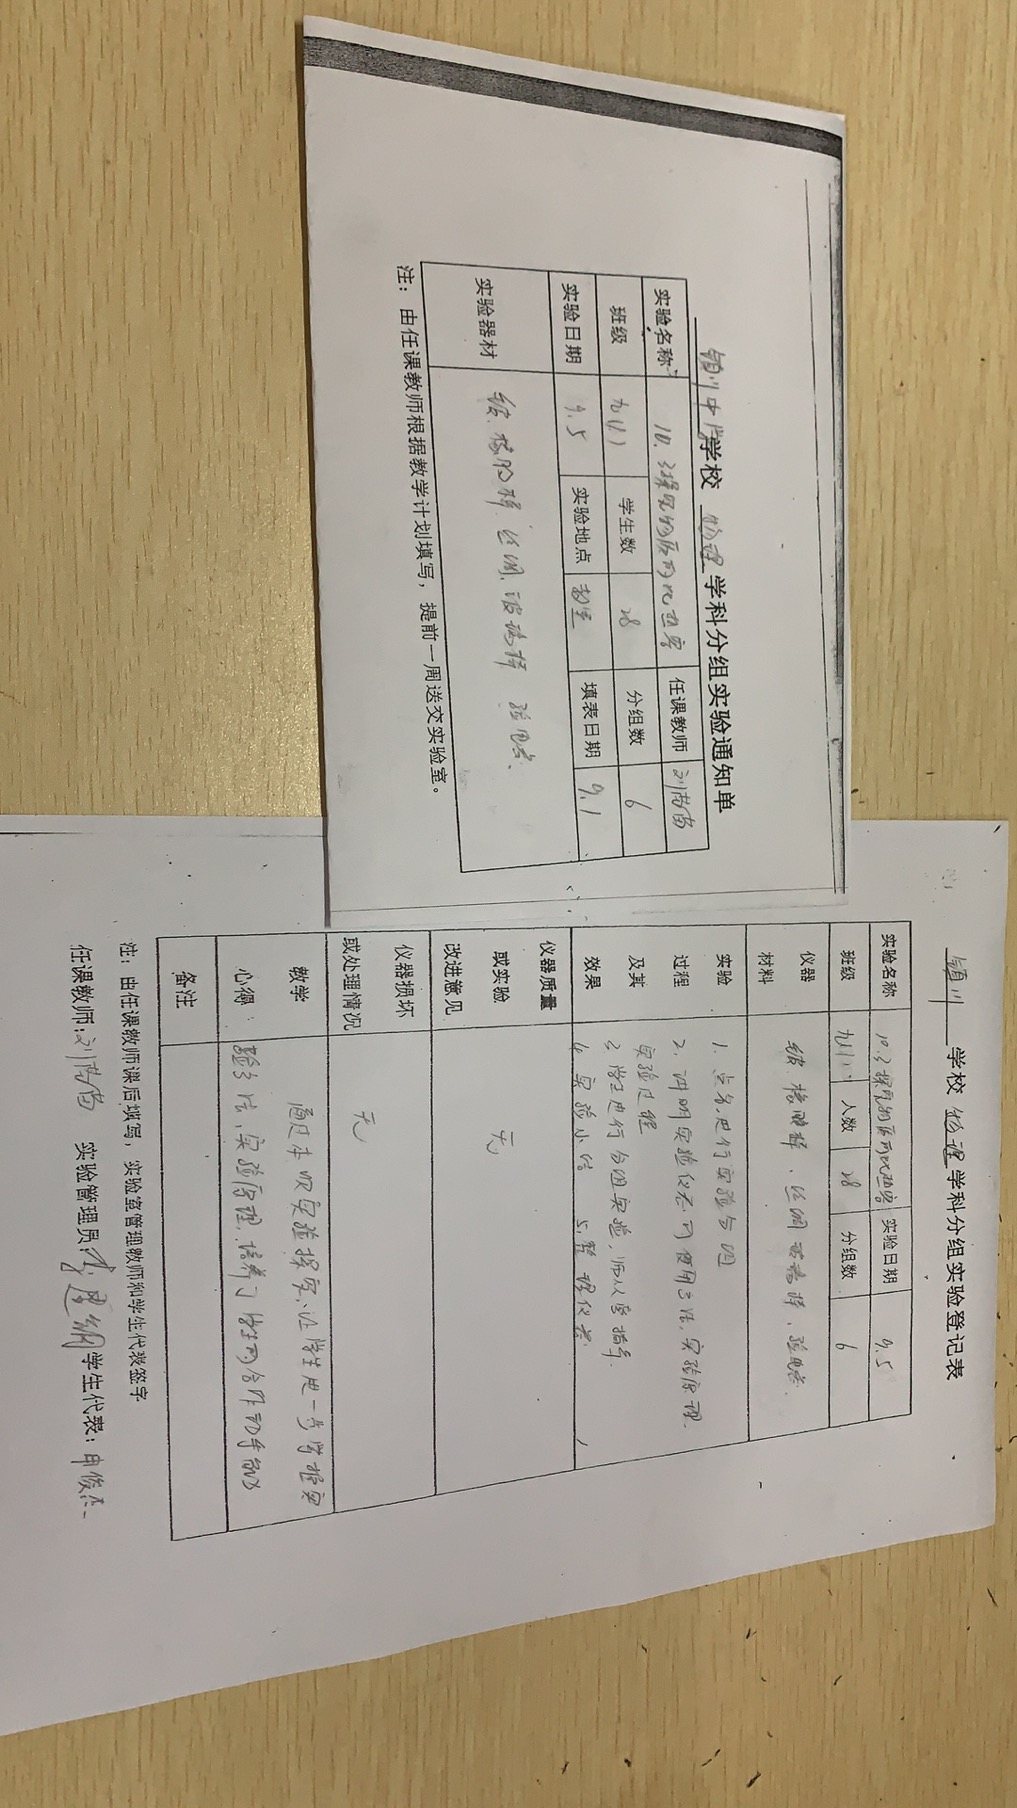 颍川中学学校 物理 学科分组实验通知单
实验名称 10.3探究物质的比热容 任课教师 刘苗苗
班级 九(1) 学生数 28 分组数 6
实验日期 9.5 实验地点 教室 填表日期 9.1
实验器材 毛皮、橡胶棒、丝绸、玻璃棒 验电器、
注：由任课教师根据教学计划填写，提前一周送交实验室。
颍川 学校 物理 学科分组实验登记表
实验名称 10.3探究物质的比热容 实验日期 9.5
班级 九(1) 人数 28 分组数 6
仪器
材料
毛皮、橡胶棒、丝绸 玻璃棒、验电器.
实验
过程
及其
效果
1. 点名,进行实验分组
2. 讲明实验仪器的使用方法,实验原理.
实验过程
3. 学生进行分组实验,师从旁指导.
4. 实验小结 5. 整理仪器.
仪器质量
或实验
改进意见
无
仪器损坏
或处理情况
无
教学
心得:
通过本次实验探究,让学生进一步掌握实
验方法,实验原理,培养了学生的合作动手能力
备注
注：由任课教师课后填写，实验室管理教师和学生代表签字
任课教师:刘苗苗 实验管理员: 学生代表:申俊杰